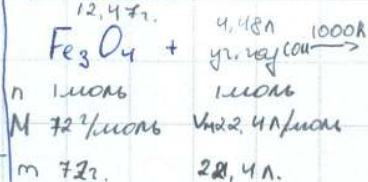 12,47г. 4,48л 1000К
Fe₃O₄ + уг. газ сон →
n 1моль 1моль
M 72г/моль Vм22,4л/моль
m 72г. 22,4л.